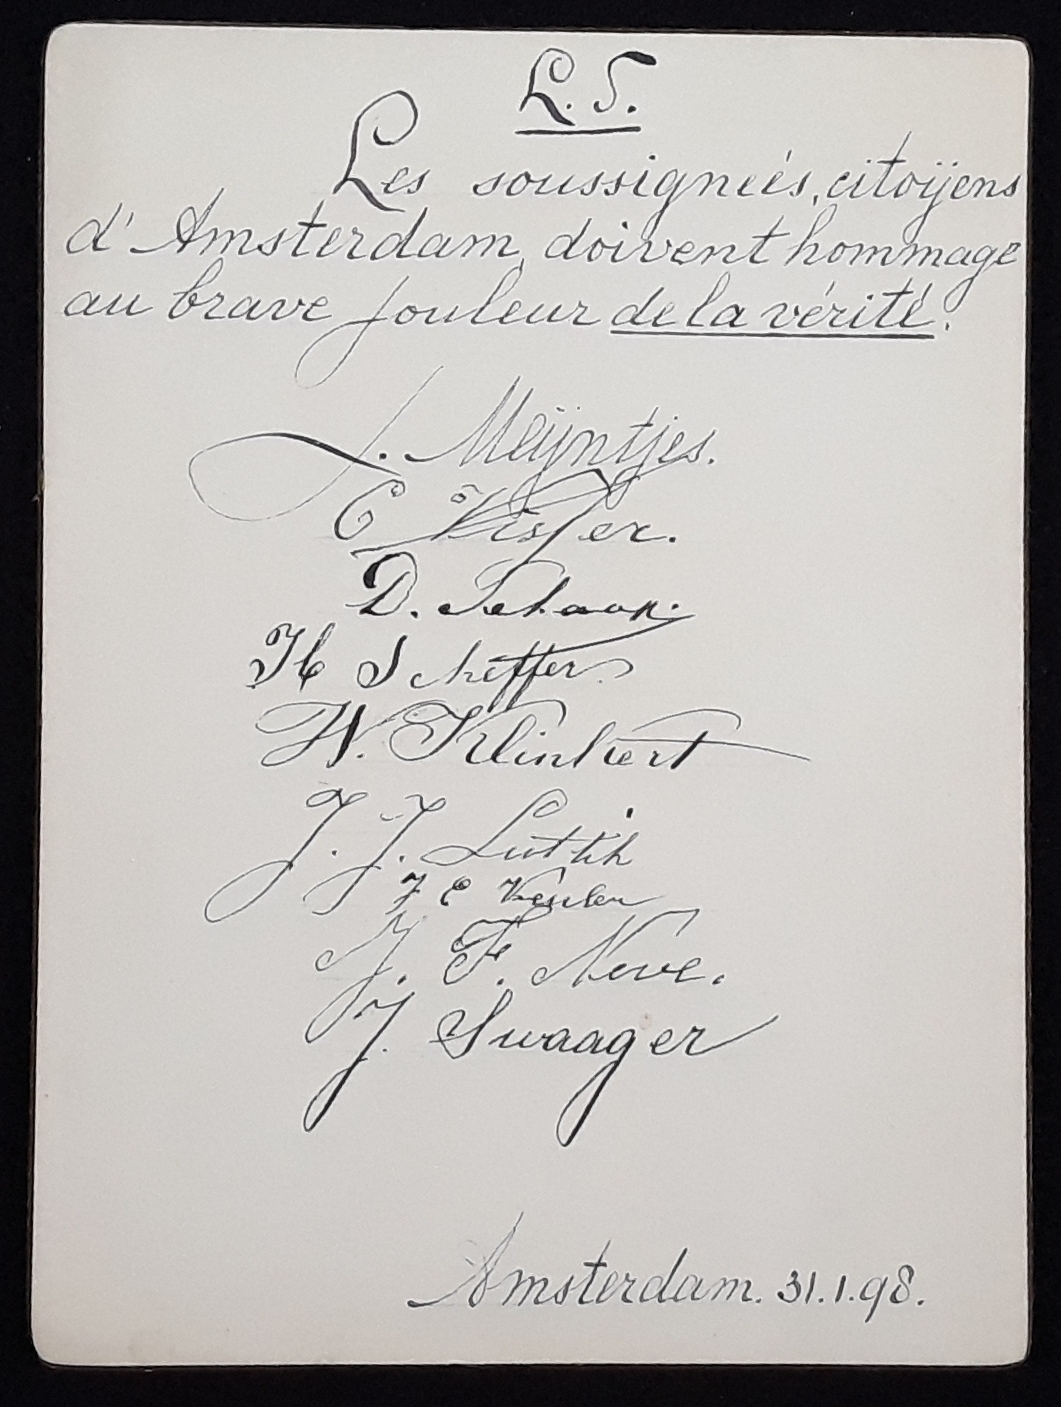 L. S.
Les soussigneés, citoÿens
d'Amsterdam, doivent hommage
au brave fouleur de la vérité.
J. Meijntjes.
C Visser.
D. Schaap.
H Scheffer.
W. Klinkert
J. J. Luttik
J. F. Neve.
J. Swaager
Amsterdam. 31.1.98.